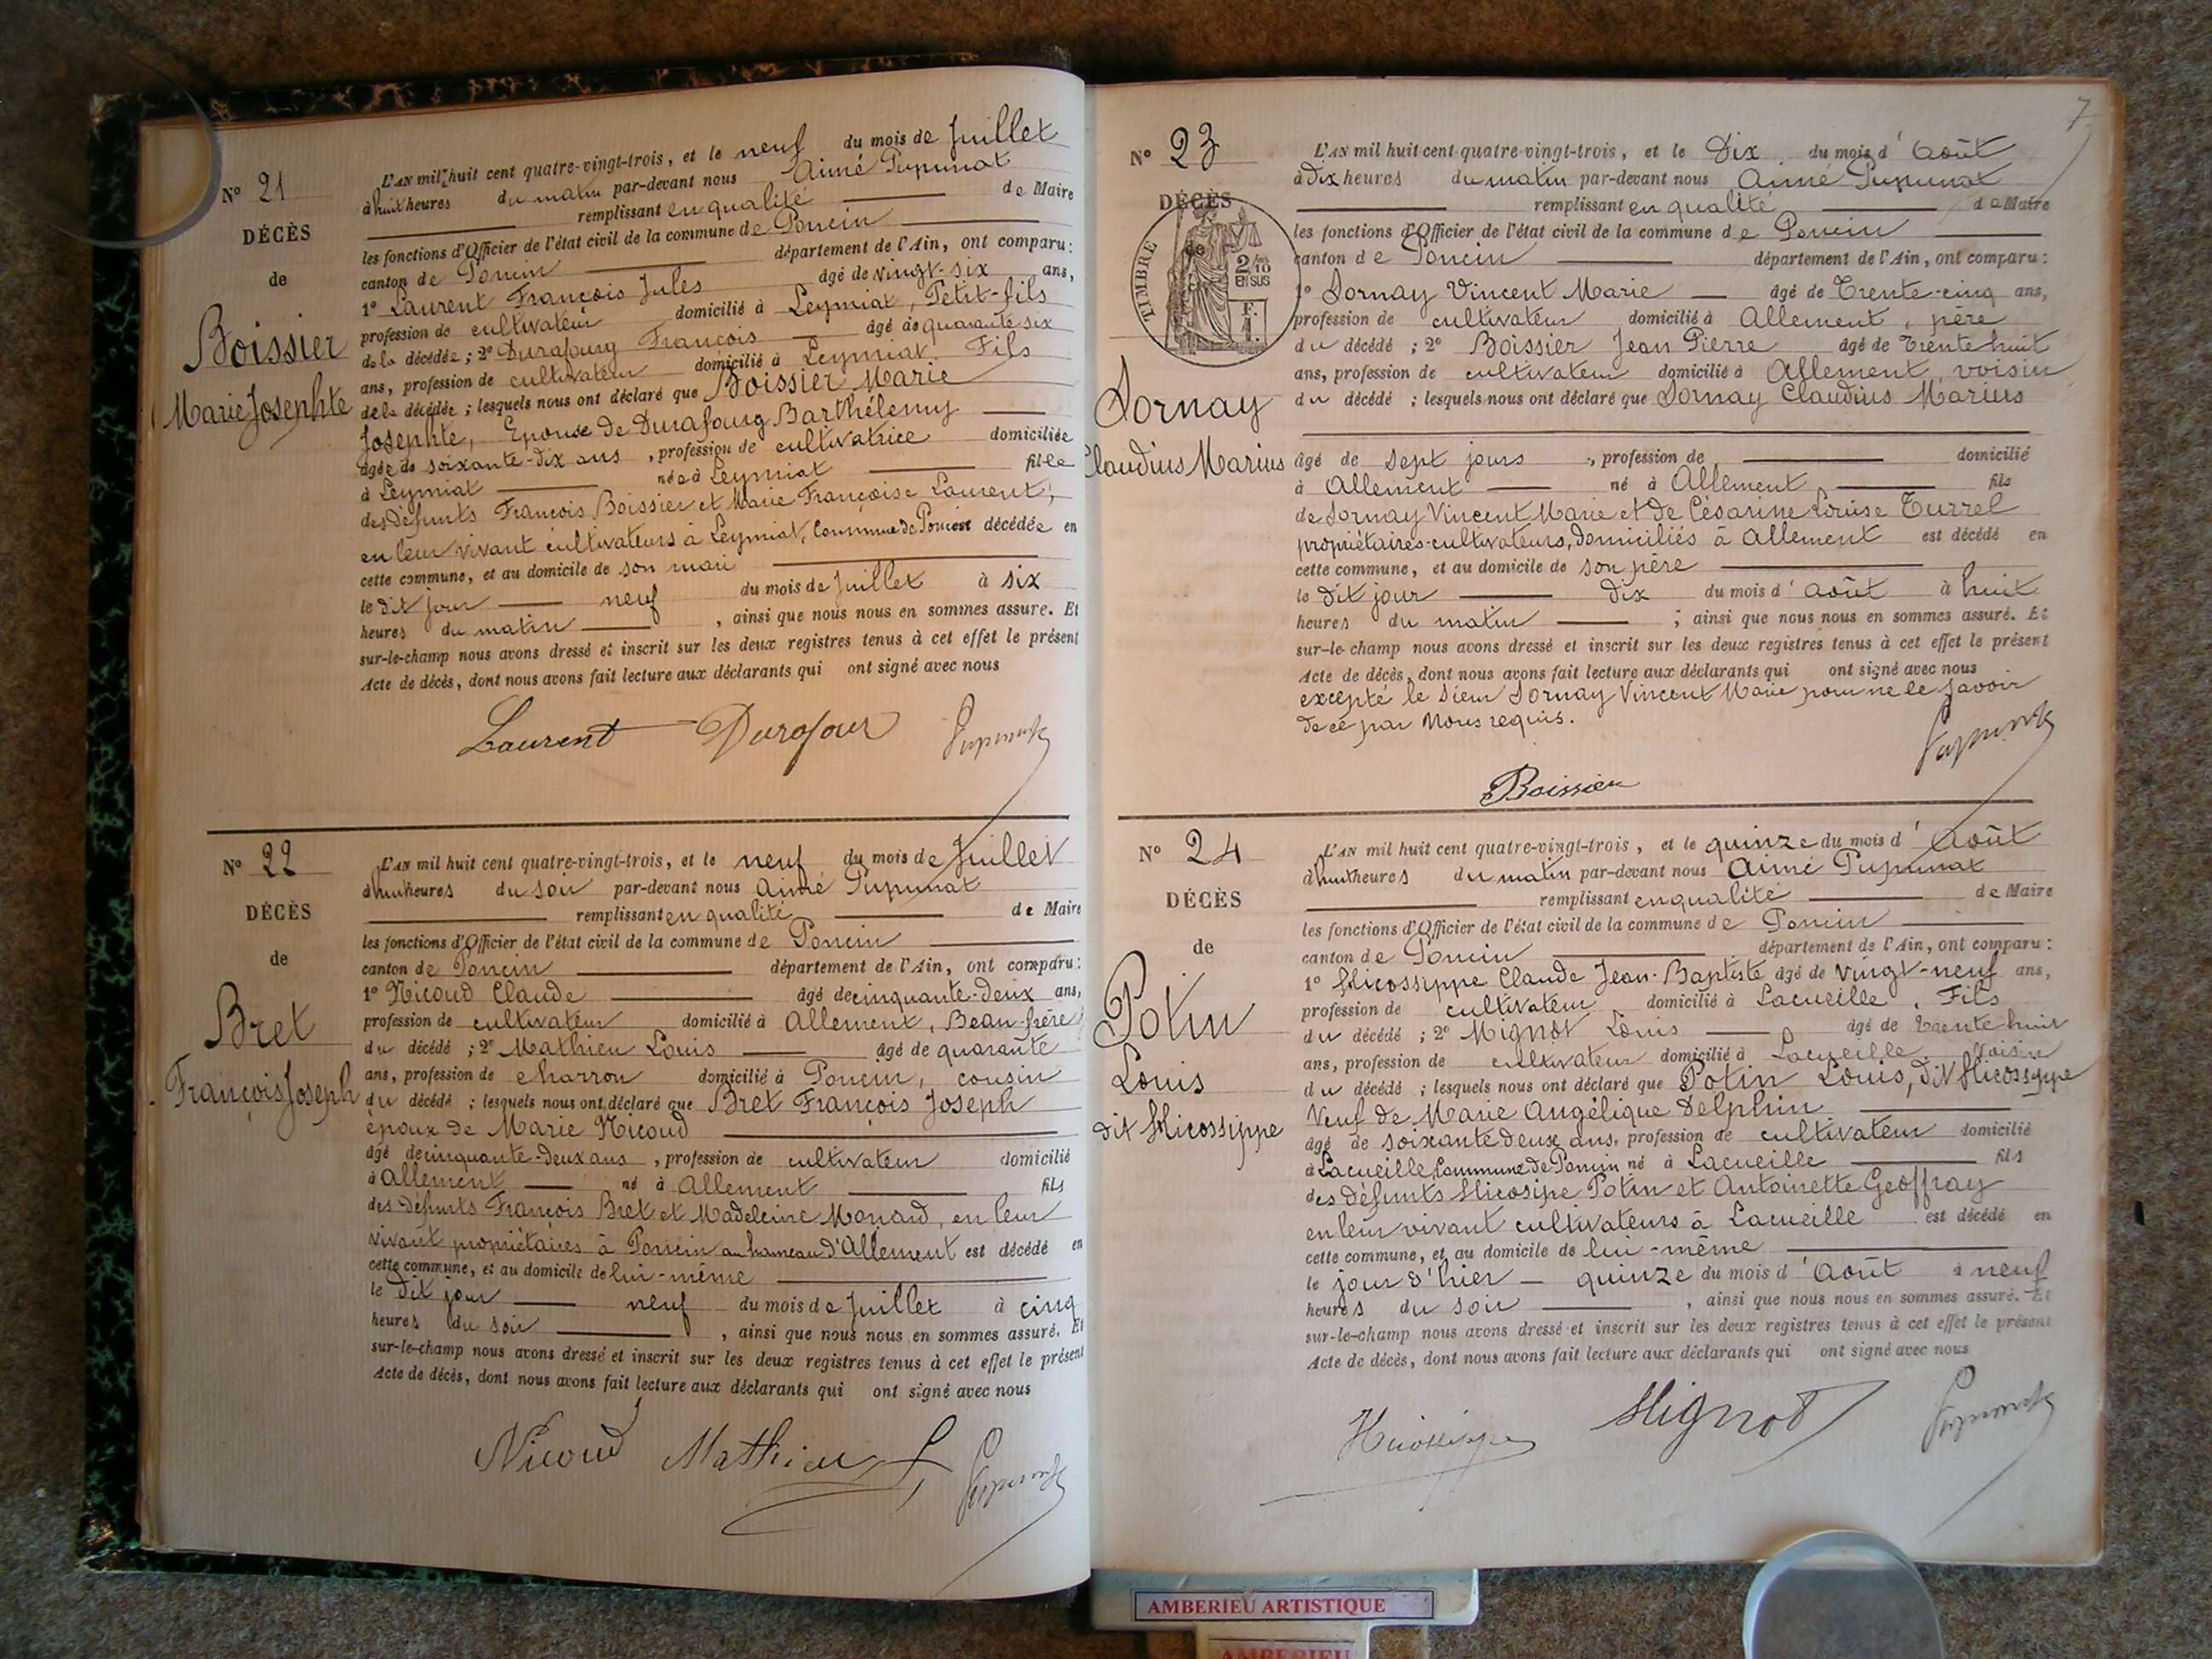 N° 21
DÉCÈS
de
Boissier
Marie Josephte
L'AN mil huit cent quatre-vingt-trois, et le neuf du mois de Juillet
à huit heures du matin par-devant nous Aimé Pupunat
remplissant en qualité de Maire
les fonctions d'Officier de l'état civil de la commune de Poncin
canton de Poncin département de l'Ain, ont comparu :
1° Laurent François Jules âgé de vingt-six ans,
profession de cultivateur domicilié à Leymiat, Petit-fils
de la décédée ; 2° Durafourg François âgé de quarante six
ans, profession de cultivateur domicilié à Leymiat. Fils
de la décédée ; lesquels nous ont déclaré que Boissier Marie
Josephte, Epouse de Durafourg Barthélemy
âgée de soixante-dix ans, profession de cultivatrice domiciliée
à Leymiat née à Leymiat fille
des défunts François Boissier et Marie Françoise Laurent,
en leur vivant cultivateurs à Leymiat, Commune de Poncin décédée en
cette commune, et au domicile de son mari
le dit jour neuf du mois de Juillet à six
heures du matin, ainsi que nous nous en sommes assuré. Et
sur-le-champ nous avons dressé et inscrit sur les deux registres tenus à cet effet le présent
Acte de décès, dont nous avons fait lecture aux déclarants qui ont signé avec nous
Laurent Durafour Pupunat
N° 22
DÉCÈS
de
Bret
François Joseph
L'AN mil huit cent quatre-vingt-trois, et le neuf du mois de Juillet
à huit heures du soir par-devant nous Aimé Pupunat
remplissant en qualité de Maire
les fonctions d'Officier de l'état civil de la commune de Poncin
canton de Poncin département de l'Ain, ont comparu :
1° Nicoud Claude âgé de cinquante-deux ans,
profession de cultivateur domicilié à Allement, Beau-frère
du décédé ; 2° Mathieu Louis âgé de quarante
ans, profession de charron domicilié à Poncin, cousin
du décédé ; lesquels nous ont déclaré que Bret François Joseph
époux de Marie Nicoud
âgé de cinquante-deux ans, profession de cultivateur domicilié
à Allement né à Allement fils
des défunts François Bret et Madeleine Monard, en leur
vivant propriétaires à Poncin au hameau d'Allement est décédé en
cette commune, et au domicile de lui-même
le dit jour neuf du mois de Juillet à cinq
heures du soir, ainsi que nous nous en sommes assuré. Et
sur-le-champ nous avons dressé et inscrit sur les deux registres tenus à cet effet le présent
Acte de décès, dont nous avons fait lecture aux déclarants qui ont signé avec nous
Nicoud Mathieu L Pupunat
7
N° 23
DÉCÈS
de
TIMBRE
2/10
EN SUS
F. 1.
Sornay
Claudius Marius
L'AN mil huit cent quatre-vingt-trois, et le Dix du mois d'Août
à Dix heures du matin par-devant nous Aimé Pupunat
remplissant en qualité de Maire
les fonctions d'Officier de l'état civil de la commune de Poncin
canton de Poncin département de l'Ain, ont comparu :
1° Sornay Vincent Marie âgé de Trente-cinq ans,
profession de cultivateur domicilié à Allement, père
du décédé ; 2° Boissier Jean Pierre âgé de Trente huit
ans, profession de cultivateur domicilié à Allement, voisin
du décédé ; lesquels nous ont déclaré que Sornay Claudius Marius
âgé de sept jours, profession de domicilié
à Allement né à Allement fils
de Sornay Vincent Marie et de Césarine Louise Turrel
propriétaires-cultivateurs, domiciliés à Allement est décédé en
cette commune, et au domicile de son père
le dit jour dix du mois d'août à huit
heures du matin ; ainsi que nous nous en sommes assuré. Et
sur-le-champ nous avons dressé et inscrit sur les deux registres tenus à cet effet le présent
Acte de décès, dont nous avons fait lecture aux déclarants qui ont signé avec nous
excepté le sieur Sornay Vincent Marie pour ne le savoir
de ce par Nous requis.
Pupunat
Boissier
N° 24
DÉCÈS
de
Potin
Louis
dit Micossippe
L'AN mil huit cent quatre-vingt-trois, et le quinze du mois d'Août
à huit heures du matin par-devant nous Aimé Pupunat
remplissant en qualité de Maire
les fonctions d'Officier de l'état civil de la commune de Poncin
canton de Poncin département de l'Ain, ont comparu :
1° Micossippe Claude Jean-Baptiste âgé de vingt-neuf ans,
profession de cultivateur domicilié à Lacueille, Fils
du décédé ; 2° Mignot Louis âgé de trente huit
ans, profession de cultivateur domicilié à Lacueille. Voisin
du décédé ; lesquels nous ont déclaré que Potin Louis, dit Micossippe
Veuf de Marie Angélique Delphin
âgé de soixante deux ans, profession de cultivateur domicilié
à Lacueille, Commune de Poncin né à Lacueille fils
des défunts Micosipe Potin et Antoinette Geoffray
en leur vivant cultivateurs à Lacueille est décédé en
cette commune, et au domicile de lui-même
le jour d'hier quinze du mois d'Août à neuf
heures du soir, ainsi que nous nous en sommes assuré. Et
sur-le-champ nous avons dressé et inscrit sur les deux registres tenus à cet effet le présent
Acte de décès, dont nous avons fait lecture aux déclarants qui ont signé avec nous
Micossippe Mignot Pupunat
AMBERIEU ARTISTIQUE
AMBERIEU